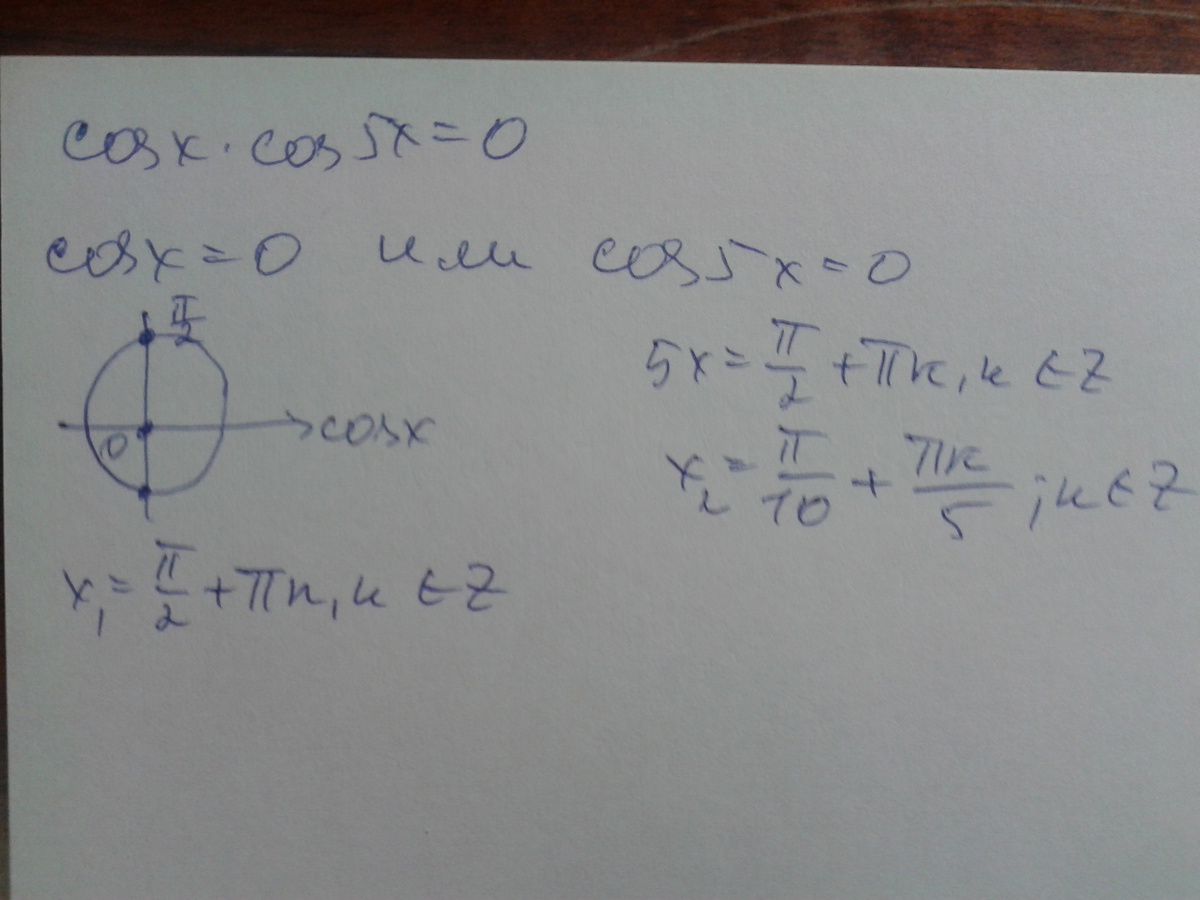 cosx · cos5x = 0
cosx = 0 или cos5x = 0
π/2
0
cosx
5x = π/2 + πк, к ∈ Z
x₂ = π/10 + πк/5 ; к ∈ Z
x₁ = π/2 + πк, к ∈ Z